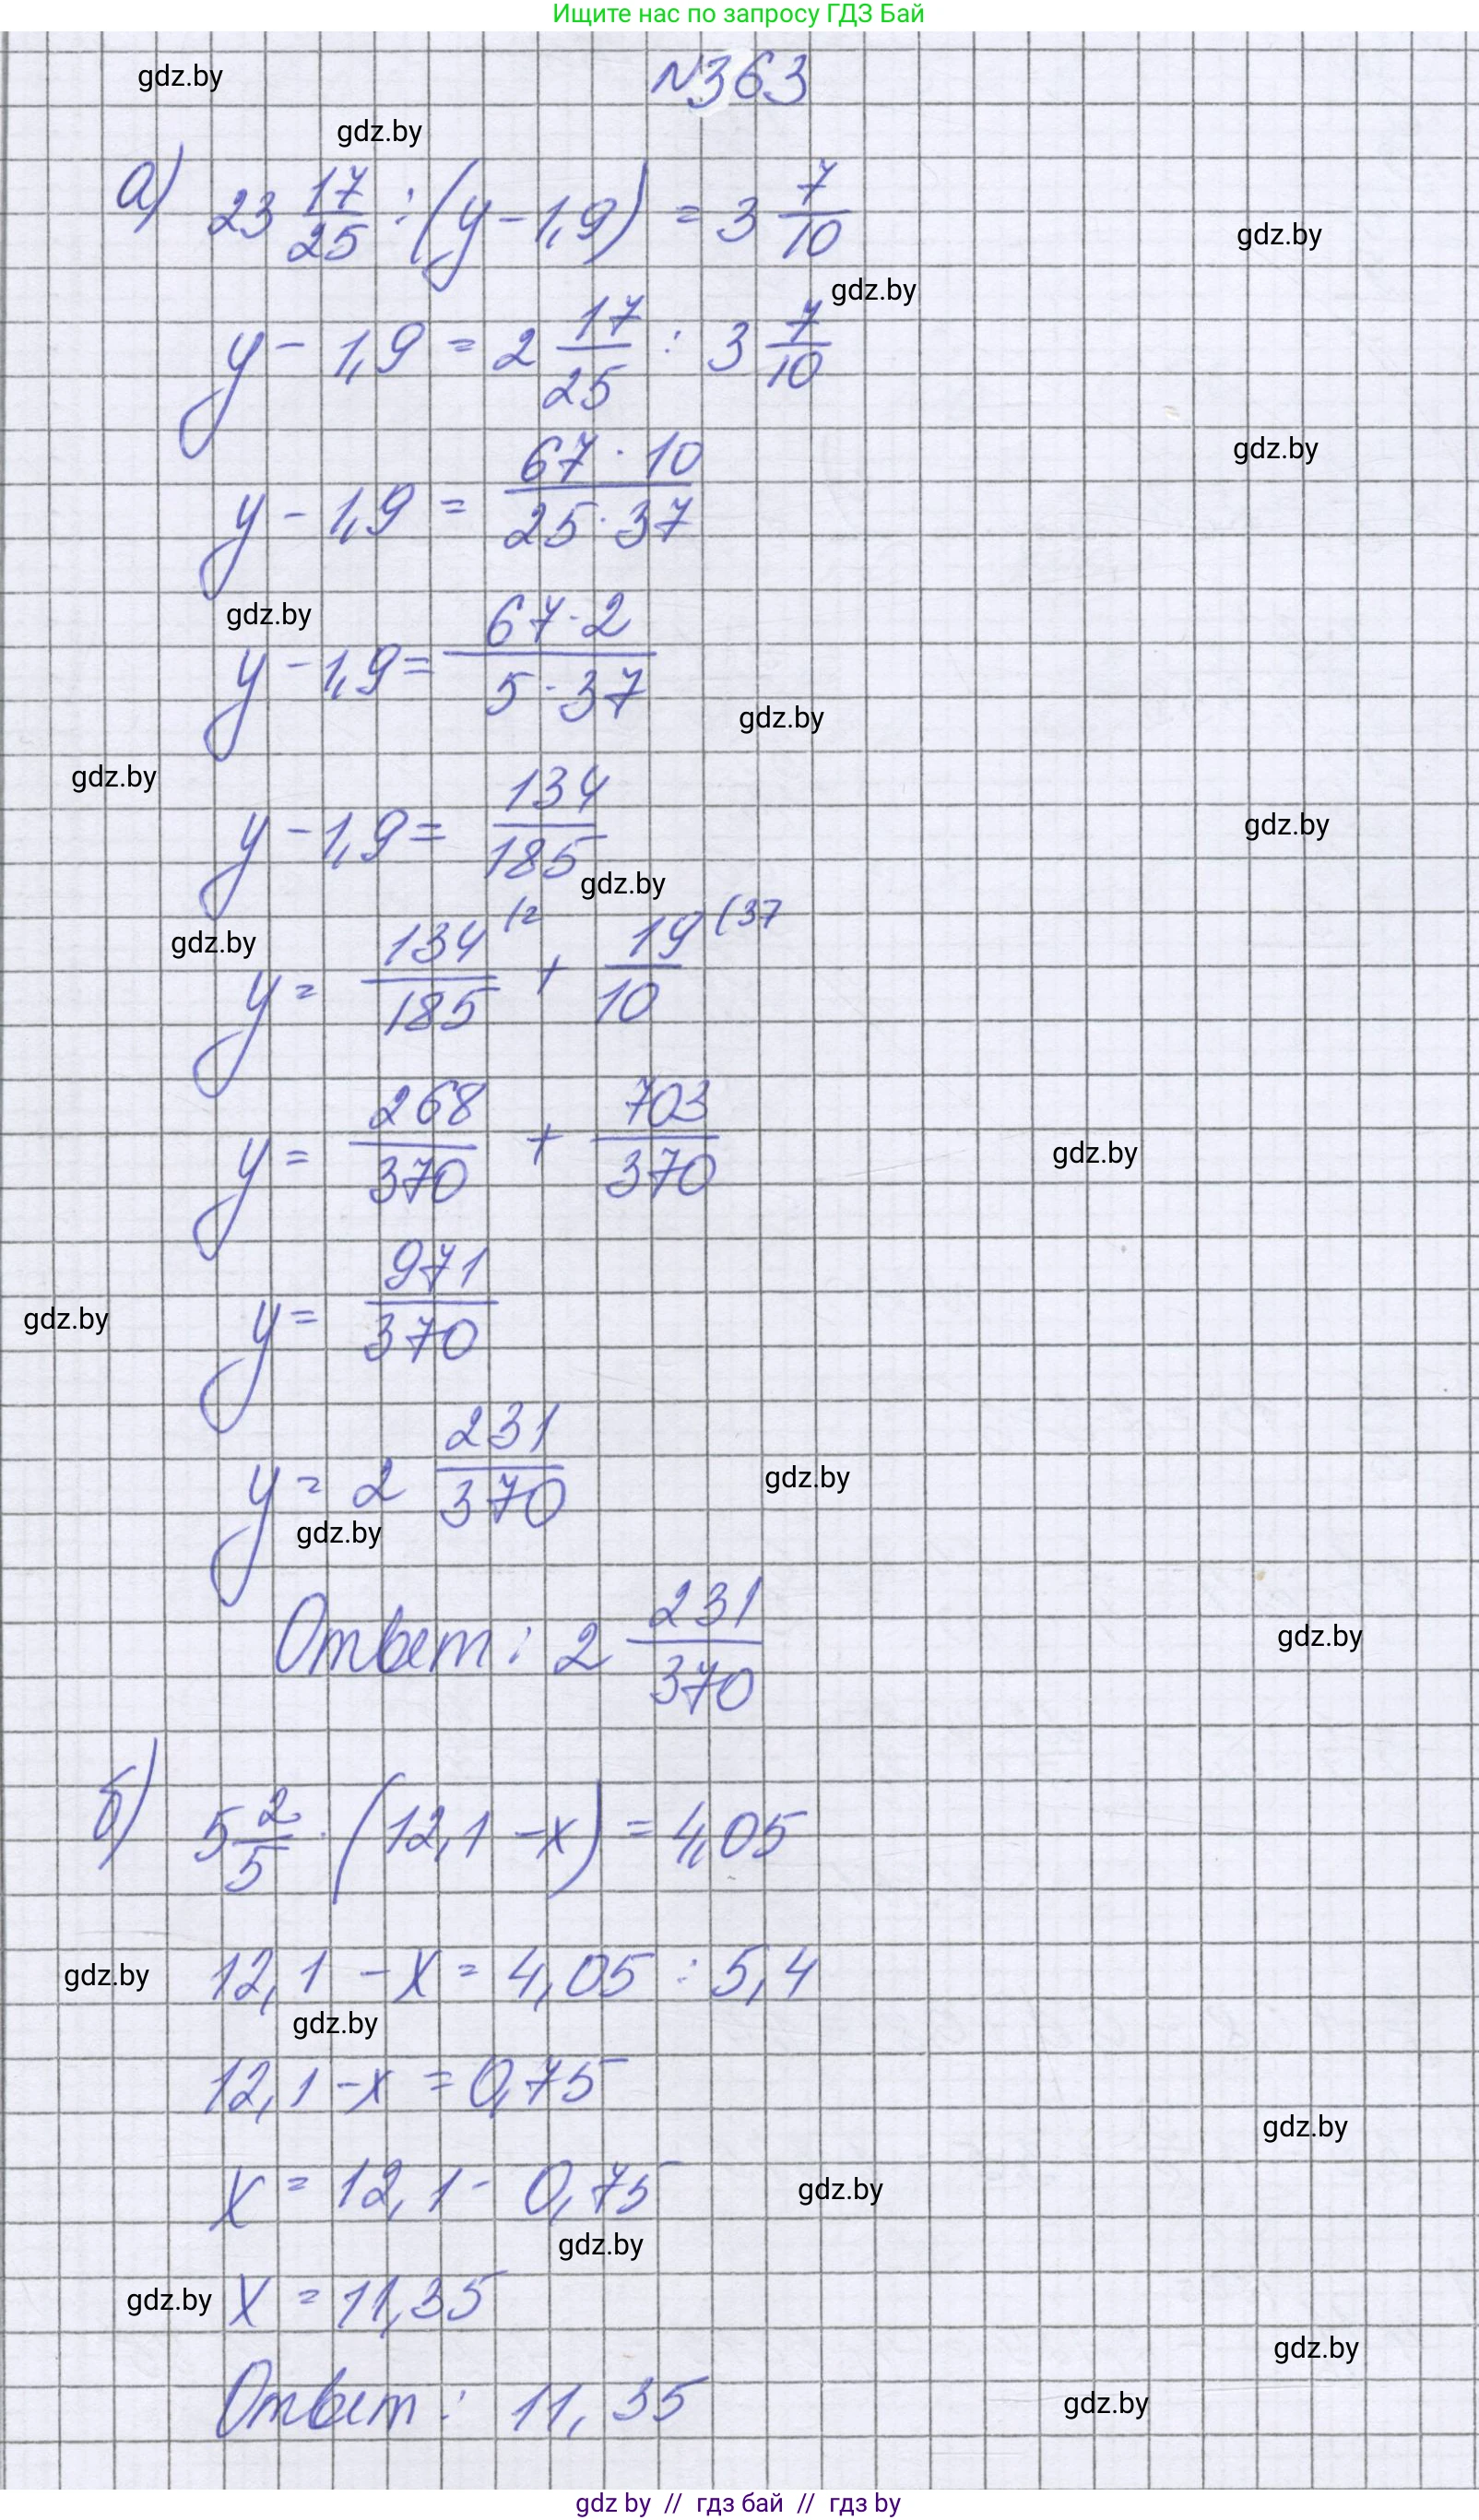 Ищите нас по запросу ГДЗ Бай
№363
gdz.by
gdz.by
а) 23 17/25 : (y - 1,9) = 3 7/10
gdz.by
gdz.by
y - 1,9 = 2 17/25 : 3 7/10
gdz.by
y - 1,9 = 67 · 10 / 25 · 37
gdz.by
y - 1,9 = 67 · 2 / 5 · 37
gdz.by
gdz.by
y - 1,9 = 134/185
gdz.by
gdz.by
gdz.by
y = 134/185 (2 + 19/10 (37
y = 268/370 + 703/370
gdz.by
y = 971/370
gdz.by
y = 2 231/370
gdz.by
gdz.by
Ответ: 2 231/370
gdz.by
б) 5 2/5 · (12,1 - x) = 4,05
12,1 - x = 4,05 : 5,4
gdz.by
gdz.by
12,1 - x = 0,75
gdz.by
x = 12,1 - 0,75
gdz.by
gdz.by
x = 11,35
gdz.by
gdz.by
Ответ: 11,35
gdz.by
gdz by // гдз бай // гдз by